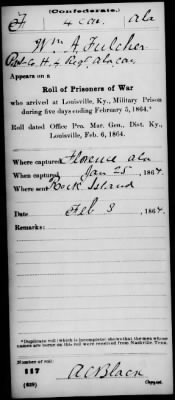 (Confederate.)
F 4 Cav. Ala
Wm A. Fulcher
Co. H, 4 Regt, Ala, Cav.
Appears on a
Roll of Prisoners of War
who arrived at Louisville, Ky., Military Prison
during five days ending February 5, 1864.*
Roll dated Office Pro. Mar. Gen., Dist. Ky.,
Louisville, Feb. 6, 1864.
Where captured Florence Ala
When captured Jan 25, 1864.
Where sent Rock Island
Date Feb 3, 1864.
Remarks:
*Duplicate roll (which is incomplete) shows that the men whose
names are borne on this roll were received from Nashville Tenn.
Number of roll:
117
(639) A C Black
Copyist.